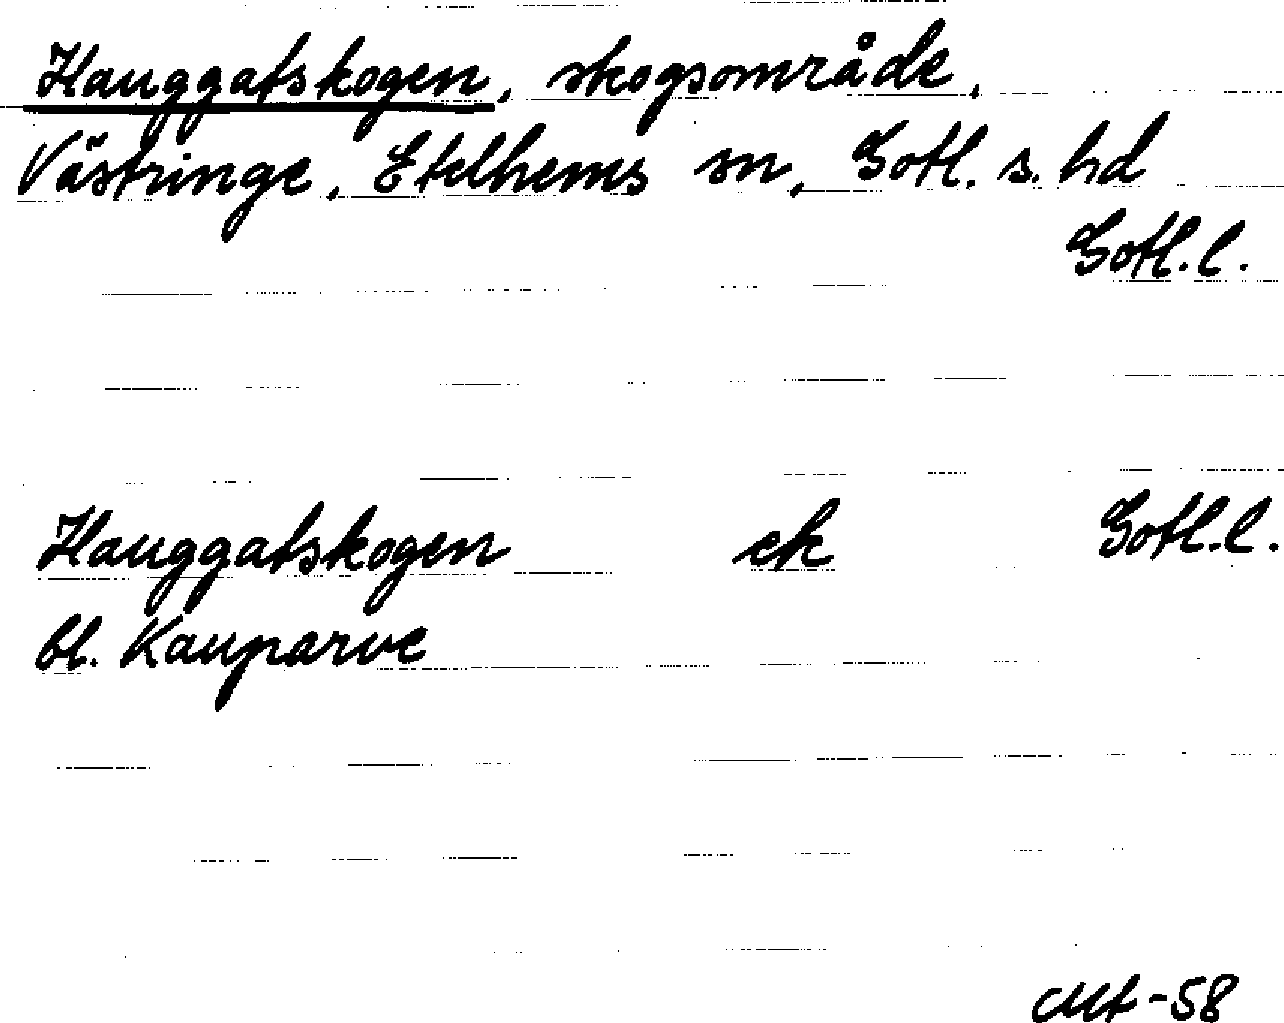 Hauggatskogen, skogsområde,
Västringe, Etelhems sn, Gotl. s. hd
Gotl. l.
Hauggatskogen ek Gotl. l.
bl. Kauparve
Mt-58